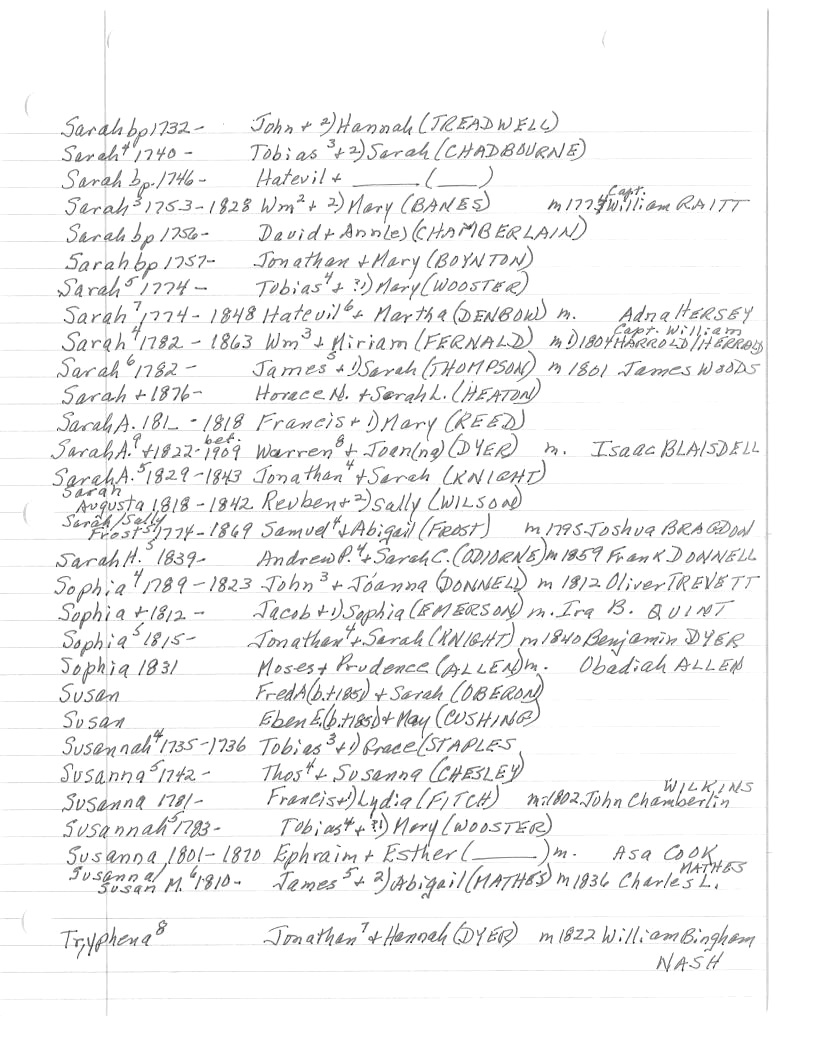 Sarah bp 1732 - John + 2) Hannah (TREADWELL)
Sarah⁴ 1740 - Tobias³ + 2) Sarah (CHADBOURNE)
Sarah bp. 1746 - Hatevil + ______ (___)
Sarah³ 1753 - 1828 Wm² + 2) Mary (BANES) m 1774 Capt. William RAITT
Sarah bp 1756 - David + Ann(e) (CHAMBERLAIN)
Sarah bp 1757 - Jonathan + Mary (BOYNTON)
Sarah⁵ 1774 - Tobias⁴ + ?1) Mary (WOOSTER)
Sarah⁷ 1774 - 1848 Hatevil⁶ + Martha (DENBOW) m. Adna HERSEY
Sarah⁴ 1782 - 1863 Wm³ + Miriam (FERNALD) m 1) 1804 Capt. William HARROLD/HERROLD
Sarah⁶ 1782 - James⁵ + 1) Sarah (THOMPSON) m 1801 James WOODS
Sarah ± 1876 - Horace N. + Sarah L. (HEATON)
Sarah A. 181_ - 1818 Francis + 1) Mary (REED)
Sarah A.⁹ ±1822 - bef. 1909 Warren⁸ + Joan(na) (DYER) m. Isaac BLAISDELL
Sarah A.⁵ 1829 - 1843 Jonathan⁴ + Sarah (KNIGHT)
Sarah
Augusta 1818 - 1842 Reuben + 2) Sally (WILSON)
Sarah/Sally
Frost⁵ 1774 - 1869 Samuel⁴ + Abigail (FROST) m 1795 Joshua BRAGDON
Sarah H.⁵ 1839 - Andrew P.⁴ + Sarah C. (ODIORNE) m 1859 Frank DONNELL
Sophia⁴ 1789 - 1823 John³ + Joanna (DONNELL) m 1812 Oliver TREVETT
Sophia ±1812 - Jacob + 1) Sophia (EMERSON) m. Ira B. QUINT
Sophia⁵ 1815 - Jonathan⁴ + Sarah (KNIGHT) m 1840 Benjamin DYER
Sophia 1831 Moses + Prudence (ALLEN) m. Obadiah ALLEN
Susan Fred A (b. ±1851) + Sarah (OBERON)
Susan Eben E. (b. ±1851) + May (CUSHING)
Susannah⁴ 1735 - 1736 Tobias³ + 1) Grace (STAPLES
Susanna⁵ 1742 - Thos⁴ + Susanna (CHESLEY)
Susanna 1781 - Francis + 1) Lydia (FITCH) m. 1802 John Chamberlin WILKINS
Susannah⁵ 1783 - Tobias⁴ + ?1) Mary (WOOSTER)
Susanna 1801 - 1870 Ephraim + Esther (______) m. Asa COOK
Susanna/
Susan M.⁶ 1810 - James⁵ + 2) Abigail (MATHES) m 1836 Charles L. MATHES
Tryphena⁸ Jonathan⁷ + Hannah (DYER) m 1822 William Bingham
NASH